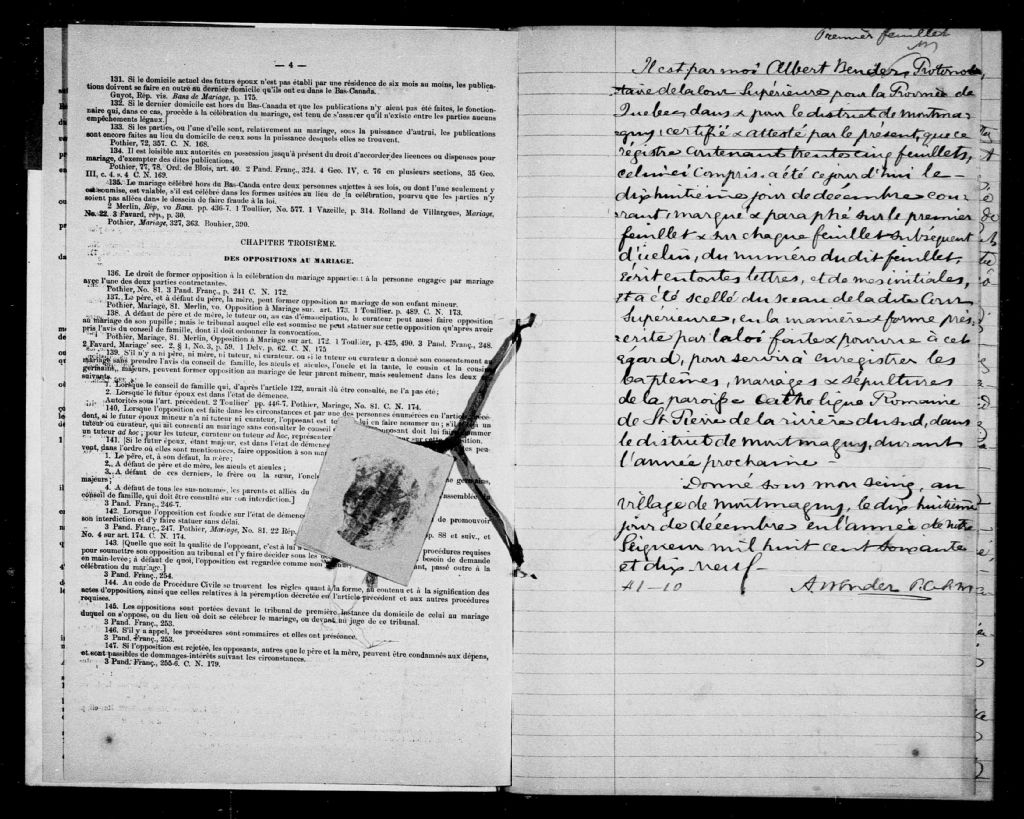 — 4 —
131. Si le domicile actuel des futurs époux n'est pas établi par une résidence de six mois au moins, les publica-
tions doivent se faire en outre au dernier domicile qu'ils ont eu dans le Bas-Canada.
Guyot, Rép. vis. Bans de Mariage, p. 175.
132. Si le dernier domicile est hors du Bas-Canada et que les publications n'y aient pas été faites, le fonction-
naire qui, dans ce cas, procède à la célébration du mariage, est tenu de s'assurer qu'il n'existe entre les parties aucuns
empêchements légaux.]
133. Si les parties, ou l'une d'elle sont, relativement au mariage, sous la puissance d'autrui, les publications
sont encore faites au lieu du domicile de ceux sous la puissance desquels elles se trouvent.
Pothier, 72, 357. C. N. 168.
134. Il est loisible aux autorités en possession jusqu'à présent du droit d'accorder des licences ou dispenses pour
mariage, d'exempter des dites publications.
Pothier, 77, 78. Ord. de Blois, art. 40. 2 Pand. Franç., 324. 4 Geo. IV, c. 76 en plusieurs sections, 35 Geo.
III, c. 4. s. 4 C. N. 169.
135. Le mariage célébré hors du Bas-Canda entre deux personnes sujettes à ses lois, ou dont l'une seulement y
est soumise, est valable, s'il est célébré dans les formes usitées au lieu de la célébration, pourvu que les parties n'y
soient pas allées dans le dessein de faire fraude à la loi.
2 Merlin, Rép, vo Bans. pp. 436-7. 1 Toullier, No. 577. 1 Vazeille, p. 314. Rolland de Villargues, Mariage,
No. 22. 3 Favard, rép., p. 30.
Pothier, Mariage, 327, 363. Bouhier, 390.
CHAPITRE TROISIÈME.
DES OPPOSITIONS AU MARIAGE.
136. Le droit de former opposition à la célébration du mariage appartient à la personne engagée par mariage
avec l'une des deux parties contractantes.
Pothier, No. 81. 3 Pand. Franç., p. 241 C. N. 172.
137. Le père, et à défaut du père, la mère, peut former opposition au mariage de son enfant mineur.
Pothier, Mariage, 81. Merlin, vo. Opposition à Mariage sur. art. 173. 1 Toullier. p. 489. C. N. 173.
138. A défaut de père et de mère, le tuteur ou, au cas d'émancipation, le curateur peut aussi faire opposition
au mariage de son pupille; mais le tribunal auquel elle est soumise ne peut statuer sur cette opposition qu'après avoir
pris l'avis du conseil de famille, dont il doit ordonner la convocation.
Pothier, Mariage, 81. Merlin, Opposition à Mariage sur art. 172. 1 Toulier, p. 425, 490. 3 Pand. Franç., 248.
2 Favard, Mariage sec. 2. § 1, No. 3, p. 59. 1 Delv., p. 62. C. N. 175
139. S'il n'y a ni père, ni mère, ni tuteur, ni curateur, ou si le tuteur ou curateur a donné son consentement au
mariage sans prendre l'avis du conseil de famille, les aïeuls et aïeules, l'oncle et la tante, le cousin et la cousine
germains, majeurs, peuvent former opposition au mariage de leur parent mineur, mais seulement dans les deux cas
suivants
1. Lorsque le conseil de famille qui, d'après l'article 122, aurait dû être consulté, ne l'a pas été;
2. Lorsque le futur époux est dans l'état de démence.
Autorités sous l'art. précédent. 2 Toullier pp. 446-7. Pothier, Mariage, No. 81. C. N. 174.
140. Lorsque l'opposition est faite dans les circonstances et par une des personnes énumérées en l'article
dent, si le futur époux mineur n'a ni tuteur ni curateur, l'opposant est
lui en faire nommer un;
tuteur ou curateur, qui ait consenti au mariage sans consulter le conseil
opposant doit lui faire nommer
un tuteur ad hoc; pour les tuteur, curateur ou tuteur ad hoc, représenter
sur cette opposition.
141. [Si le futur époux, étant majeur, est dans l'état de démence
vent, dans l'ordre où elles sont mentionnées, faire opposition à son mar
1. Le père, et, à son défaut, la mère;
2. A défaut de père et de mère, les aïeuls et aïeules;
3. A défaut de ces derniers, le frère ou la sœur, l'oncle
germains,
majeurs;
4. A défaut de tous les sus-nommés, les parents et alliés du
assemblée
conseil de famille, qui doit être consulté sur son interdiction.]
3 Pand. Franç., 246-7.
142. Lorsque l'opposition est fondée sur l'état de démence
de promouvoir
son interdiction et d'y faire statuer sans délai.
3 Pand. Franç., 247. Pothier, Mariage, No. 81. 22 Rép
pp. 88 et suiv., et
No. 4 sur art. 174. C. N. 174.
143. [Quelle que soit la qualité de l'opposant, c'est à lui à
procédures requises
pour soumettre son opposition au tribunal et l'y faire décider sous les
besoin de demande
en main-levée; à défaut de quoi, l'opposition est regardée comme non
ant, passé outre à la
célébration du mariage.]
3 Pand. Franç., 254.
144. Au code de Procédure Civile se trouvent les règles quant à la forme, au contenu et à la signification des
actes d'opposition, ainsi que celles relatives à la péremption décrétée en l'article précédent et aux autres procédures
requises.
145. Les oppositions sont portées devant le tribunal de première instance du domicile de celui au mariage
duquel on s'oppose, ou du lieu où doit se célébrer le mariage, ou devant au juge de ce tribunal.
3 Pand. Franç., 253.
146. S'il y a appel, les procédures sont sommaires et elles ont préséance.
3 Pand. Franç., 253.
147. Si l'opposition est rejetée, les opposants, autres que le père et la mère, peuvent être condamnés aux dépens,
et sont passibles de dommages-intérêts suivant les circonstances.
3 Pand. Franç., 255-6. C. N. 179.
Premier feuillet
Il est par moi Albert Bender, Protono-
taire de la cour Supérieure pour la Province de
Quebec dans & pour le district de Montma-
gny, certifié & attesté par le présent, que ce
régistre contenant trente cinq feuillets,
celui ci compris, a été ce jour d'hui le
dix huitième jour de décembre cou-
rant, marqué & paraphé sur le premier
feuillet & sur chaque feuillet subséquent
d'icelui, du numéro du dit feuillet,
écrit en toutes lettres, et de mes initiales,
et a été scellé du sceau de la dite Cour
Supérieure, en la manière & forme pres,
crite par la loi faite & pourvue à cet
égard, pour servir à enregistrer les
baptêmes, mariages & sépultures
de la paroisse catholique Romaine
de St Pierre de la rivière du sud, dans
le district de Montmagny, durant
l'année prochaine —
Donné sous mon seing, au
village de Montmagny, le dix huitième
jour de décembre en l'année de notre
Seigneur mil huit cent soixante
et dix-neuf —
41-10
A Bender P.C.S.M